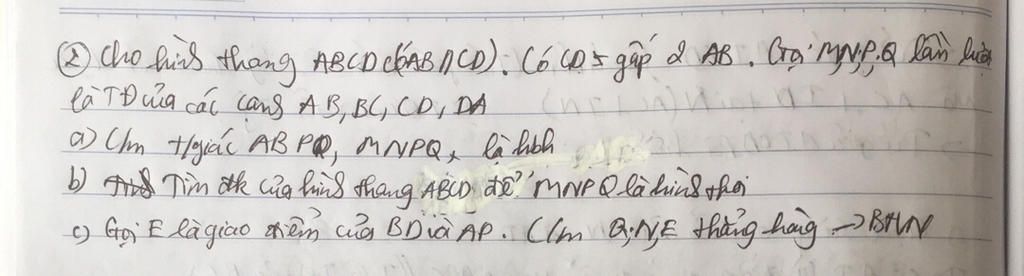 ② Cho hình thang ABCD có (AB // CD). Có CD = gấp 2 AB. Gọi M,N,P,Q lần lượt
là TĐ của các cạnh AB, BC, CD, DA
a) C/m t/giác ABPQ, MNPQ là hbh
b) Tìm đk của hình thang ABCD để MNPQ là hình thoi
c) Gọi E là giao điểm của BD và AP. C/m Q,N,E thẳng hàng → BHN